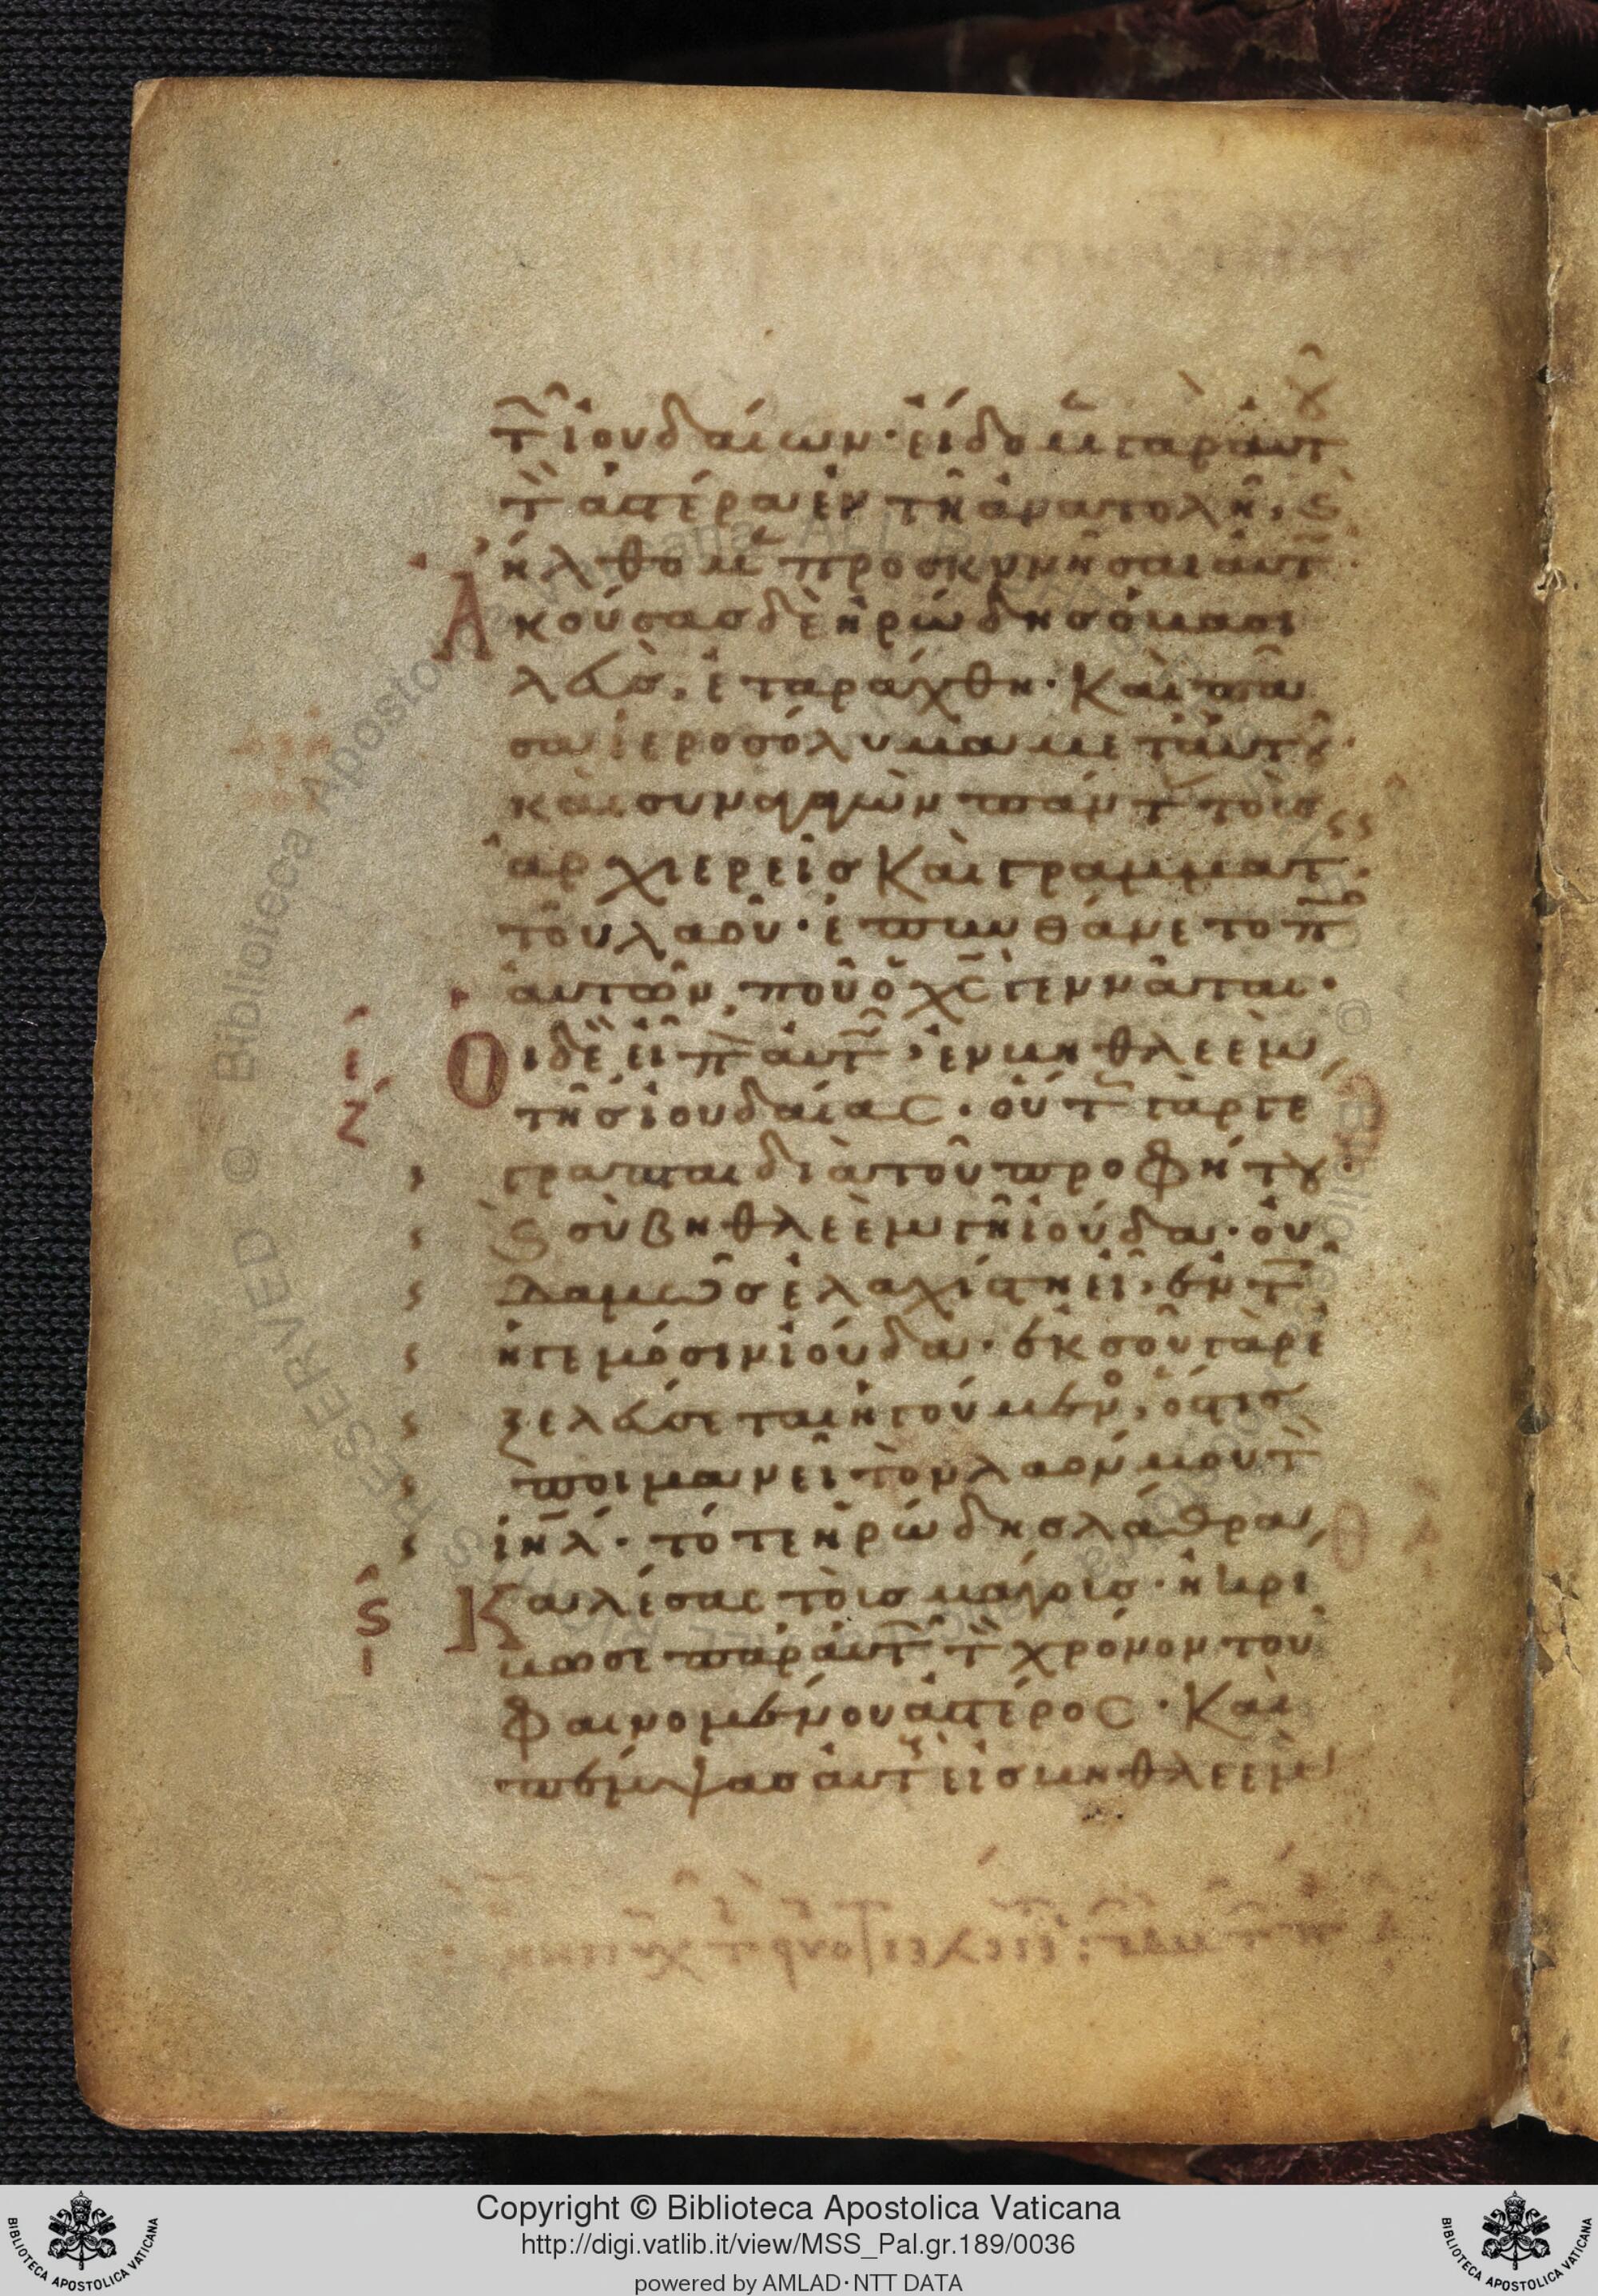 τ῀ ἰουδαίων· εἴδομ(εν) γὰρ αυτοῦ
τ῍ ἀστέρα ἐν τῆ ἀνατολῆ, ϗ
ἤλθομ(εν) προσκυνῆσαι αὐτ῀.
Ἀκούσασ δὲ ἡρώδησ ὁ βασι
λεὺσ, ἐταράχθη· Καὶ πᾶ
σα ἱεροσόλυμα μετ᾽ αὐτοῦ·
καὶ συναγαγὼν πάντ῀ τοὺσ
ἀρχιερεῖσ Καὶ γραμματ῀
τοῦ λαοῦ· ἐπυνθάνετο π῀
αὐτῶν, ποῦ ὁ χ̅ς̅ γεννᾶται·
Οἱ δὲ εἶπ῀ αὐτ῀· ἐν βηθλεὲμ
τῆσ ἰουδαίας· οὕτ῀ γὰρ γέ
γραπται διὰ τοῦ προφήτου·
ϗ σὺ βηθλεὲμ γῆ ἰούδα· οὐ
δαμῶσ ἐλαχίστη εἶ, ἐν τ῀
ἡγεμόσιν ἰούδα· ἐκ σοῦ γὰρ ἐ
ξελεύσεται ἡγούμεν(ο), ὅστισ
ποιμανεῖ τὸν λαόν μου τ῍
ι̅η̅λ̅· τότε ἡρώδησ λάθρα
Καλέσας τοὺσ μάγουσ· ἠκρί
βωσε παρ᾽ αὐτ῀ τ῍ χρόνον τοῦ
φαινομένου ἀστέρος· Καὶ
πέμψασ αὐτ῀ εἰσ βηθλεέμ
Copyright © Biblioteca Apostolica Vaticana
http://digi.vatlib.it/view/MSS_Pal.gr.189/0036
powered by AMLAD·NTT DATA